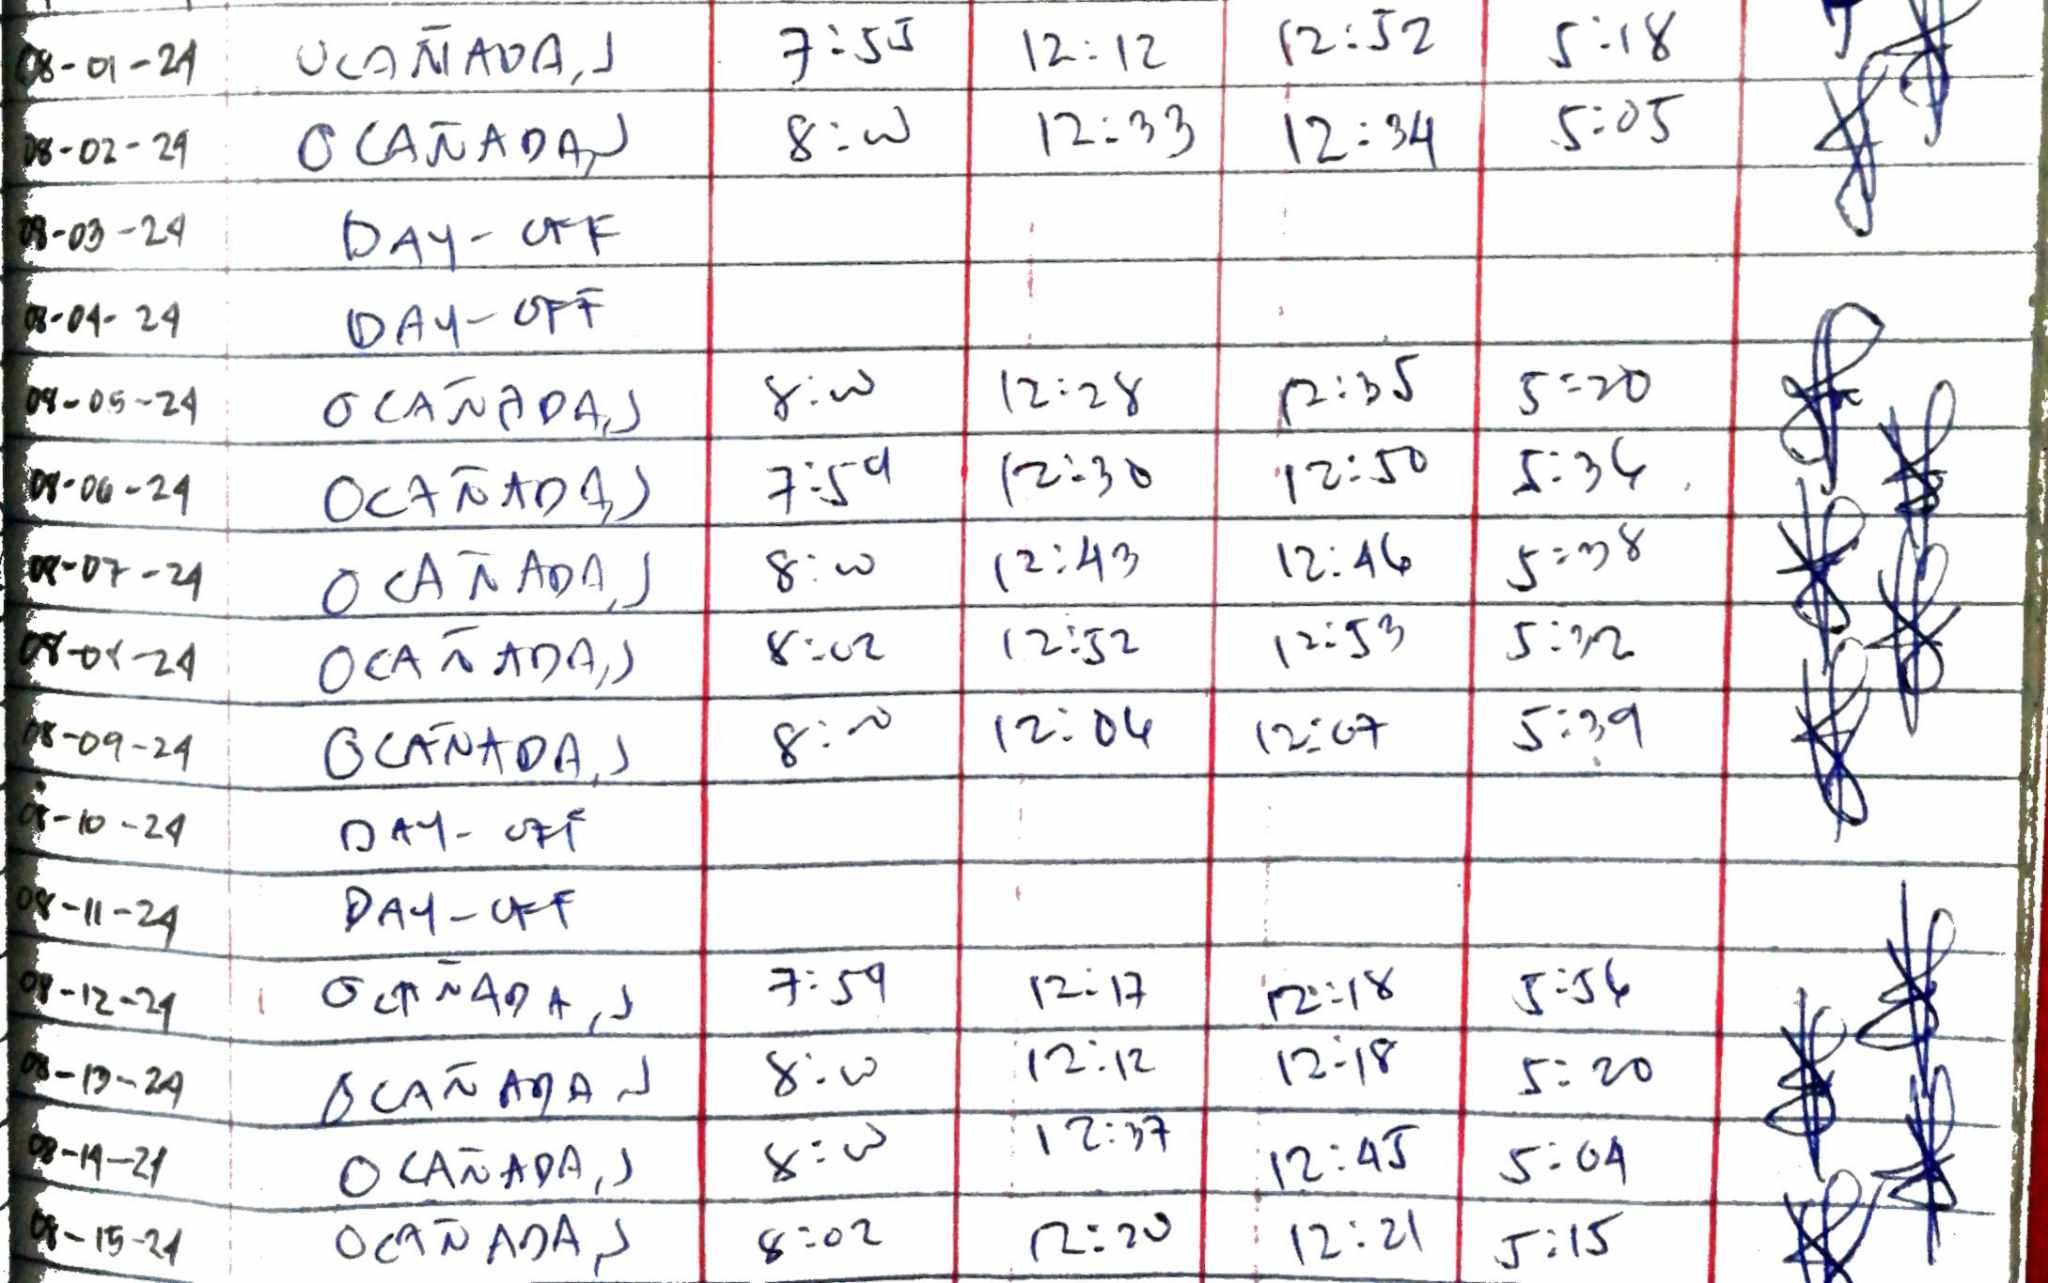 08-01-24 OCAÑADA, J 7:55 12:12 12:52 5:18
08-02-24 OCAÑADA, J 8:00 12:33 12:34 5:05
08-03-24 DAY-OFF
08-04-24 DAY-OFF
08-05-24 OCAÑADA, J 8:00 12:28 12:35 5:20
08-06-24 OCAÑADA, J 7:59 12:30 12:50 5:36
08-07-24 OCAÑADA, J 8:00 12:43 12:46 5:38
08-08-24 OCAÑADA, J 8:02 12:52 12:53 5:32
08-09-24 OCAÑADA, J 8:00 12:06 12:07 5:39
08-10-24 DAY-OFF
08-11-24 DAY-OFF
08-12-24 OCAÑADA, J 7:59 12:17 12:18 5:56
08-13-24 OCAÑADA J 8:00 12:12 12:18 5:20
08-14-24 OCAÑADA, J 8:00 12:37 12:45 5:04
08-15-24 OCAÑADA, J 8:02 12:20 12:21 5:15